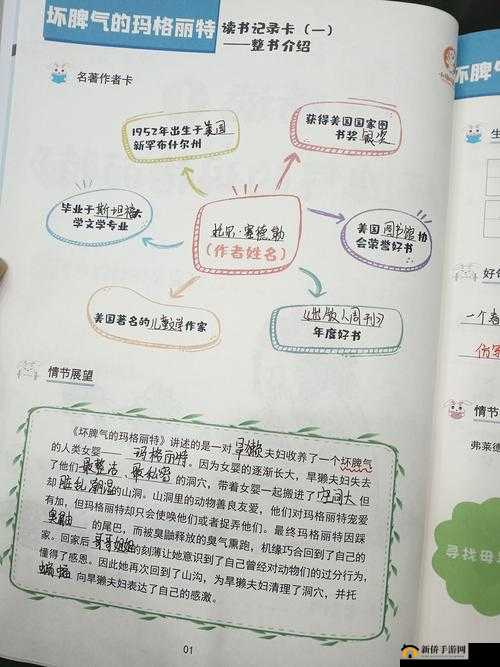 坏脾气的玛格丽特
读书记录卡（一）
——整书介绍
名著作者卡
1952年出生于美国
新罕布什尔州
获得美国国家图
书奖银奖
毕业于斯坦福大
学文学专业
托尔·塞德勒
（作者姓名）
美国图书馆协
会荣誉好书
美国著名的儿童文学作家
《出版人周刊》
年度好书
情节展望
《坏脾气的玛格丽特》讲述的是一对旱獭夫妇收养了一个坏脾气
的人类女婴——玛格丽特。因为女婴的逐渐长大，旱獭夫妇失去
了他们最整洁、最私密的洞穴，带着女婴一起搬进了空间大但
却脏乱潮湿的山洞。山洞里的动物善良友爱，他们对玛格丽特宠爱
有加，但玛格丽特却只会使唤他们或者捉弄他们。最终玛格丽特因踩
臭鼬的尾巴，而被臭鼬释放的臭气熏跑，机缘巧合回到了自己的
家。回家后哥哥姐姐的刻薄让她意识到了自己曾经对动物们的过分行为，
懂得了感恩。因此她再次回到了山沟，为旱獭夫妇清理了洞穴，并托
蝙蝠向旱獭夫妇表达了自己的感激。
01
坏脾
生
好句
一个春
仿写
情节
弗莱德
寻找母
新侨手游网